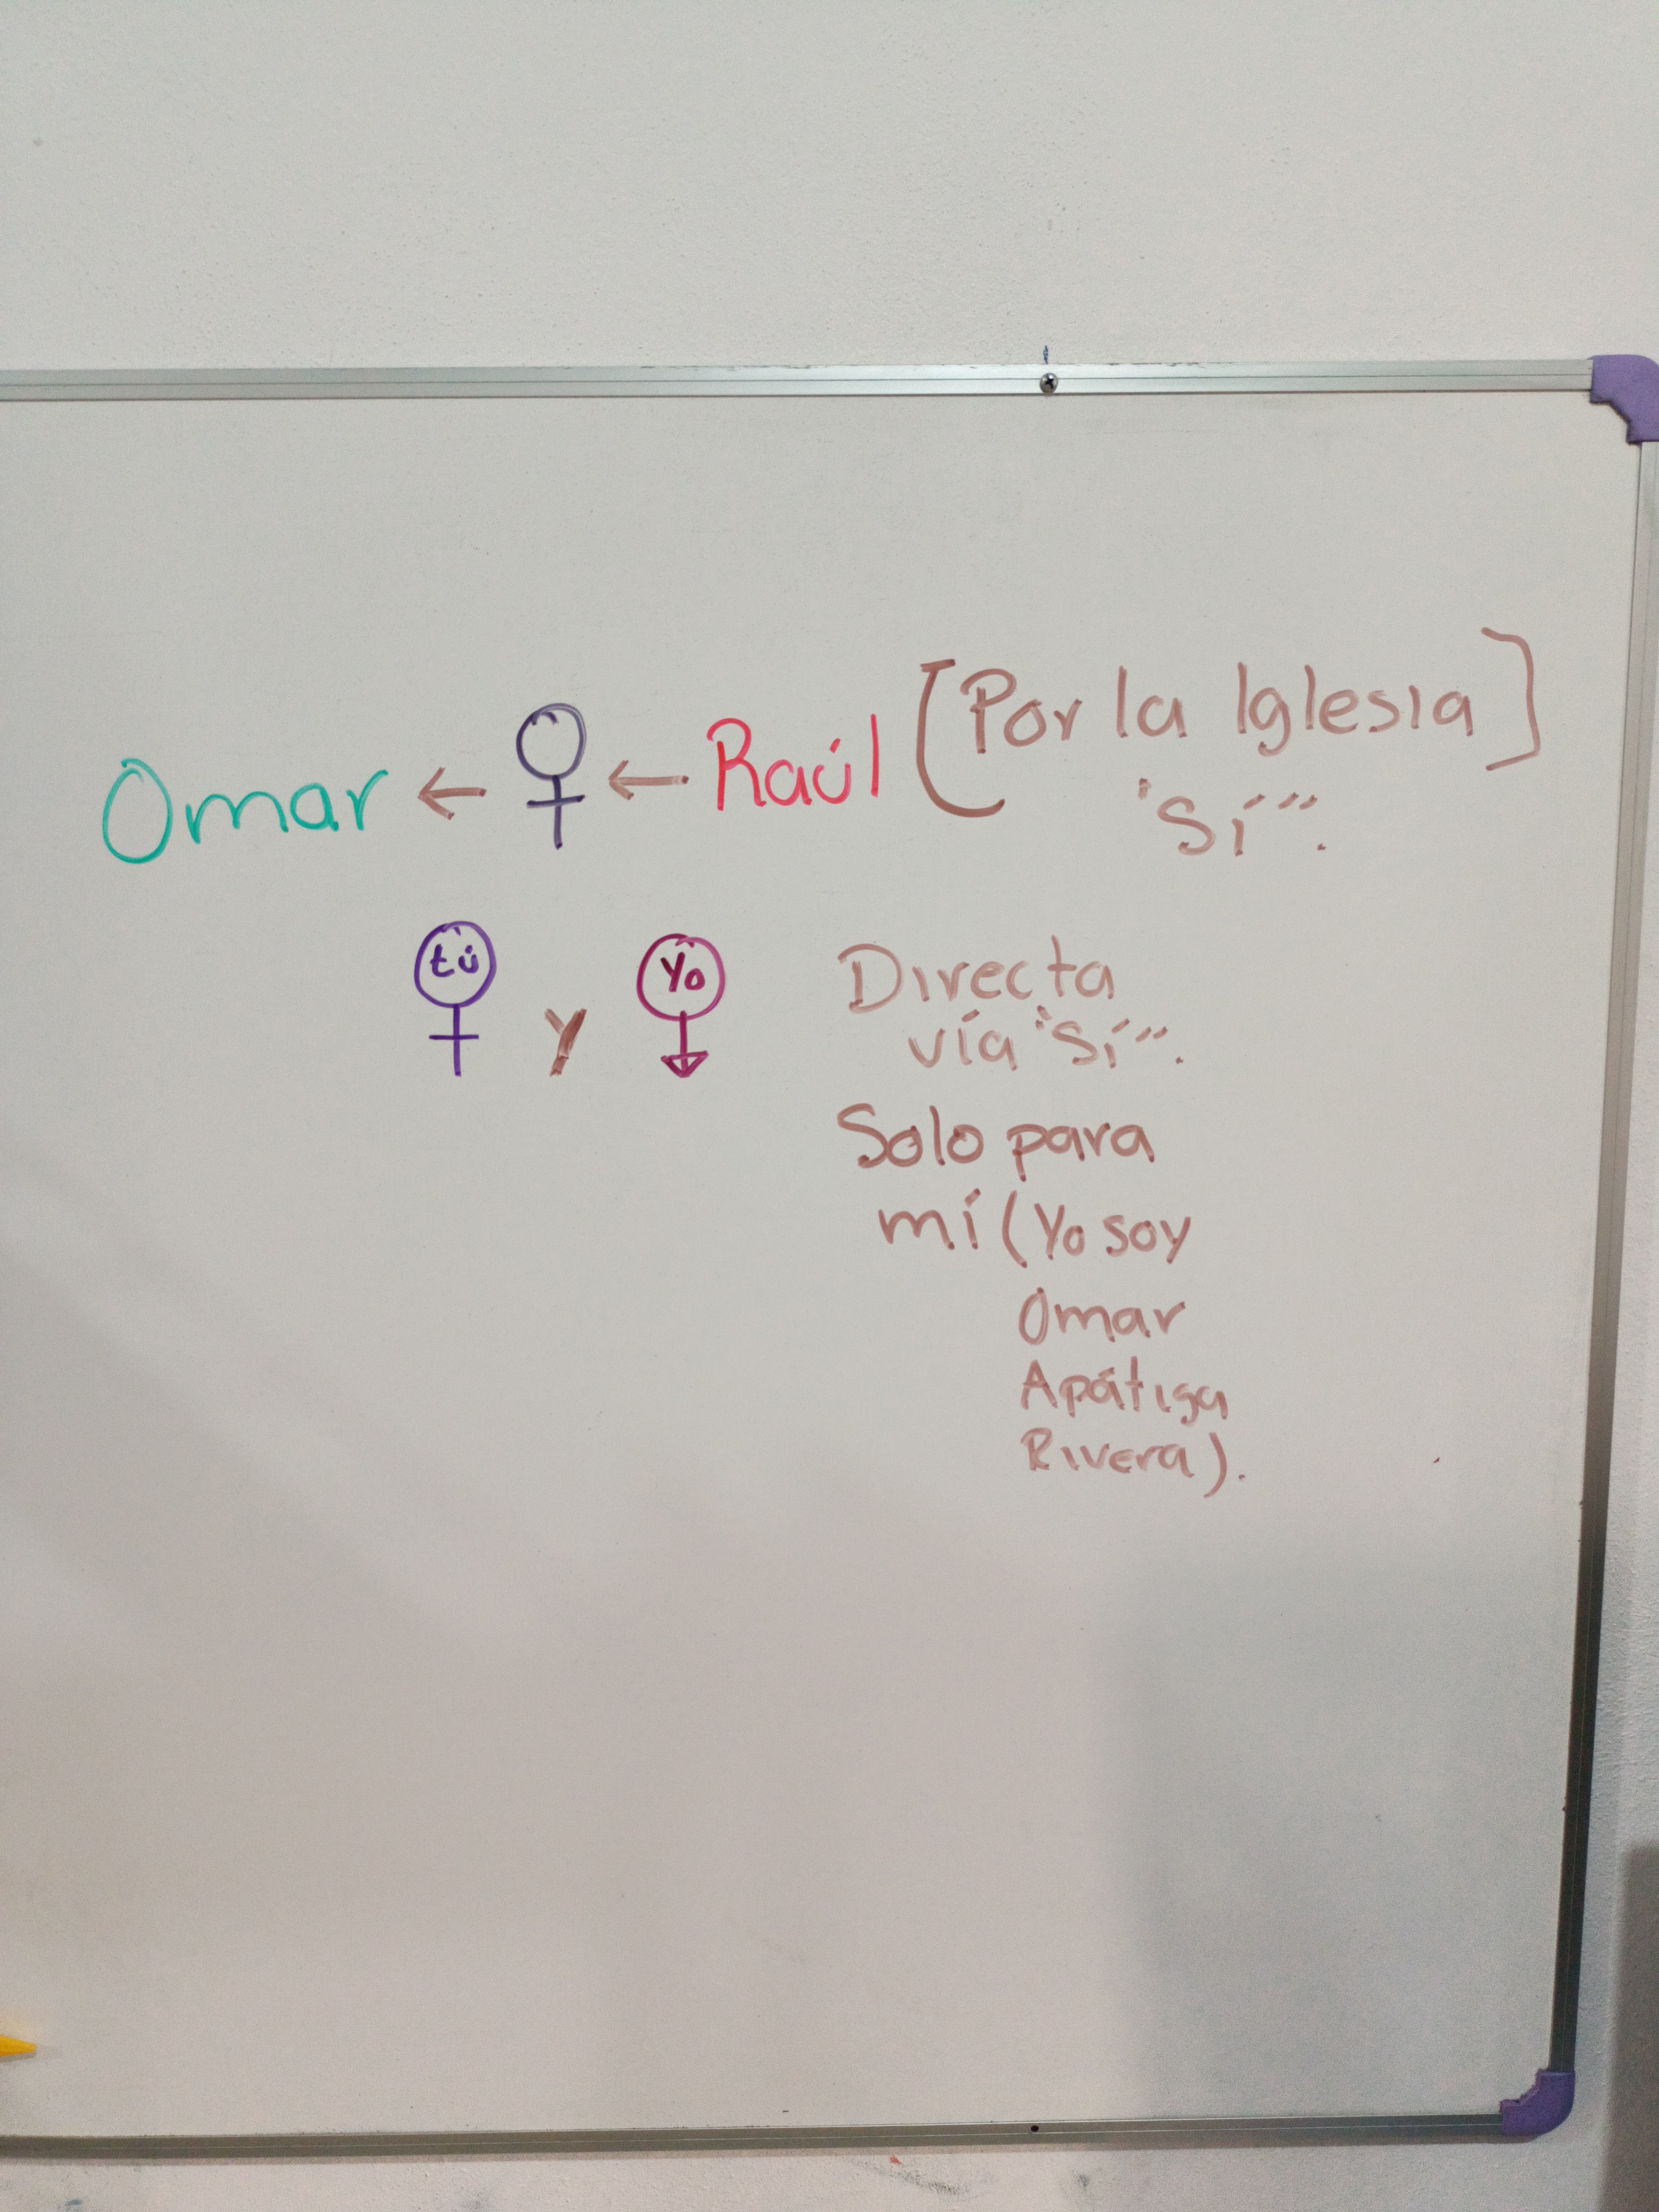 Omar ← ♀ ← Raúl [Por la Iglesia]
"Sí".
tú y yo Directa
vía "Sí".
Solo para
mí (Yo soy
Omar
Apátiga
Rivera).